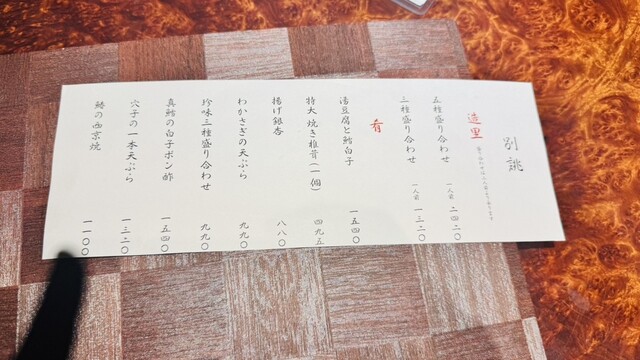 別誂
造里
五種盛り合わせ 一人前 二四二〇
三種盛り合わせ 一人前 一三二〇
肴
湯豆腐と鱈白子 一五四〇
特大焼き椎茸(一個) 四九五
揚げ銀杏 八八〇
わかさぎの天ぷら 九九〇
珍味三種盛り合わせ 九九〇
真鱈の白子ポン酢 一五四〇
穴子の一本天ぷら 一三二〇
鰆の西京焼 一一〇〇